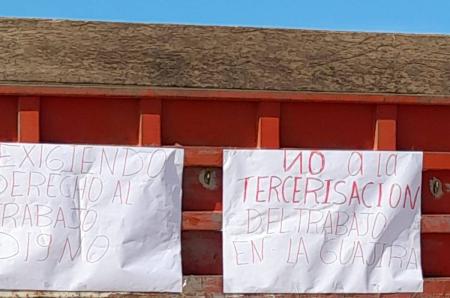 EXIGIENDO
DERECHO AL
TRABAJO
DIGNO
NO a la
TERCERISACION
DEL TRABAJO
EN LA GUAJIRA